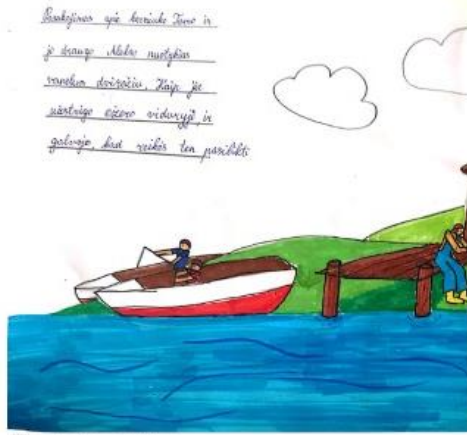 Pasakojimas apie berniuko Tomo ir
jo draugo nuotykius
vandens dviračiu. Kaip jie
užstrigo ežero viduryje, ir
galvojo, kad reikės ten pasilikti